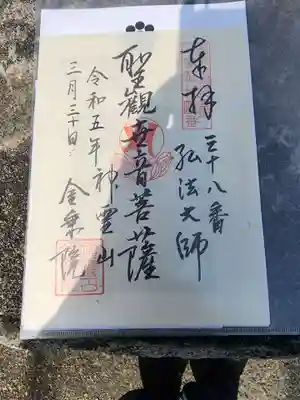 奉拝
三十八番
弘法大師
聖観世音菩薩
令和五年神霊山
三月三十日
金乗院